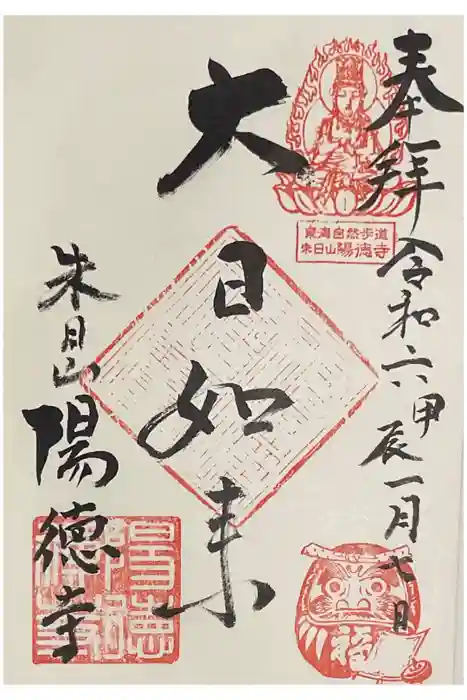 奉拜 令和六甲辰一月七日
東海自然歩道
朱日山陽徳寺
大日如来
朱日山
陽徳寺
福